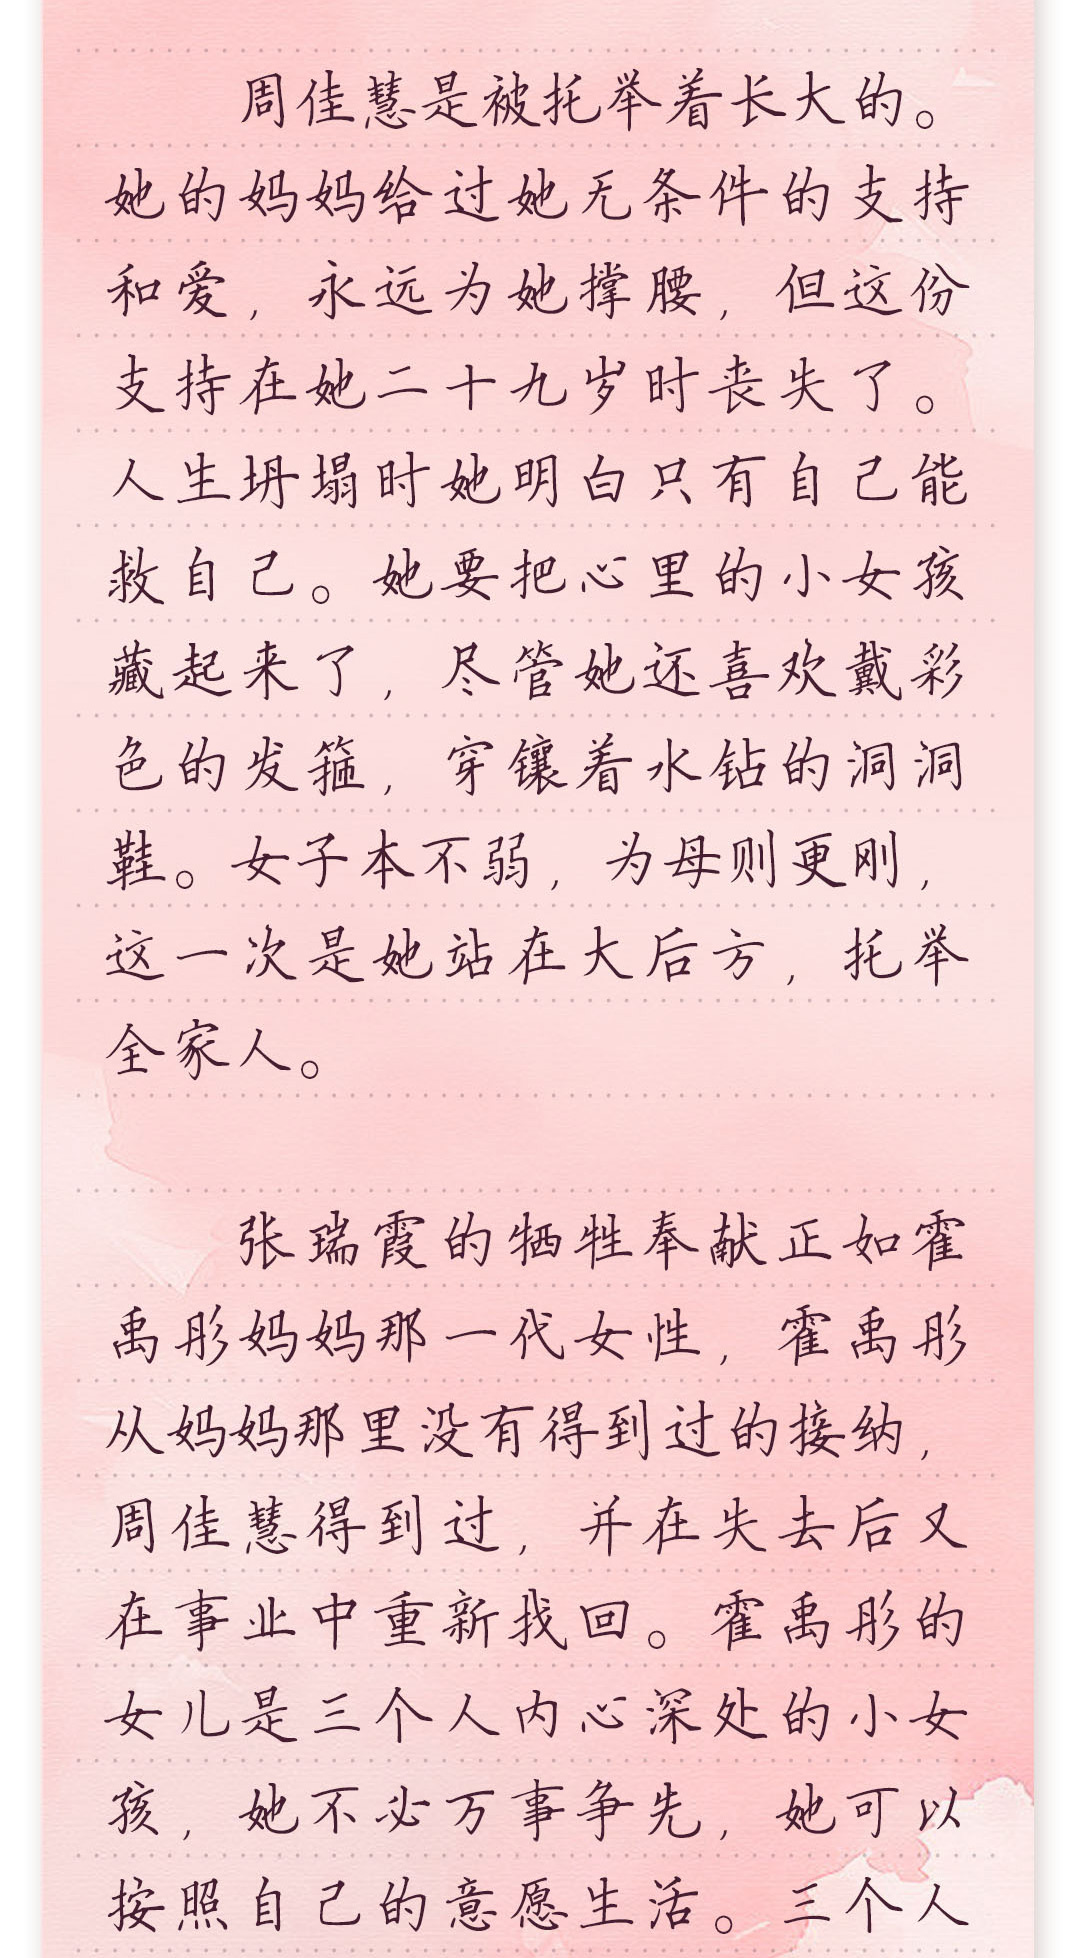 周佳慧是被托举着长大的。
她的妈妈给过她无条件的支持
和爱，永远为她撑腰，但这份
支持在她二十九岁时丧失了。
人生坍塌时她明白只有自己能
救自己。她要把心里的小女孩
藏起来了，尽管她还喜欢戴彩
色的发箍，穿镶着水钻的洞洞
鞋。女子本不弱，为母则更刚，
这一次是她站在大后方，托举
全家人。
张瑞霞的牺牲奉献正如霍
禹彤妈妈那一代女性，霍禹彤
从妈妈那里没有得到过的接纳，
周佳慧得到过，并在失去后又
在事业中重新找回。霍禹彤的
女儿是三个人内心深处的小女
孩，她不必万事争先，她可以
按照自己的意愿生活。三个人